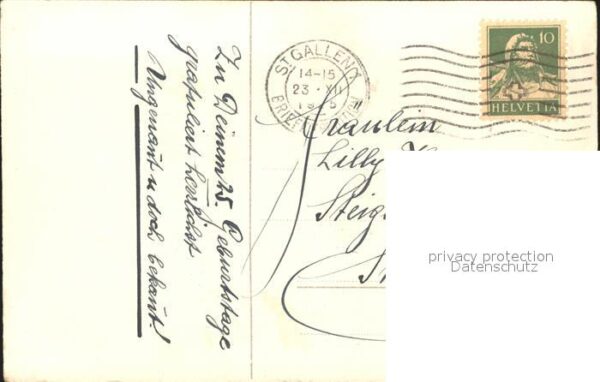 Zu Deinem 25. Geburtstage
gratuliert herzlichst
Ungenant u doch bekant!
ST. GALLEN 1
14-15
23 · XII
BRIEF
10
HELVETIA
Fräulein
Lilly
Steig
privacy protection
Datenschutz